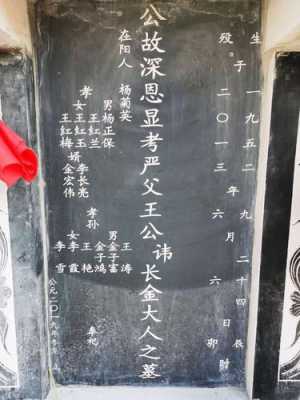 生一九五二九二十四辰
于年月日时
殁二〇一三六六卯
公故深恩显考严父王公讳长金大人之墓
在阳人 杨菊英
孝
男杨正保
女王红兰
王红梅
婿李长亮
金宏伟
孝孙
男王涛
金子富
金子鸿
女王艳
李霞
李雪
奉祀
公元二〇一九年